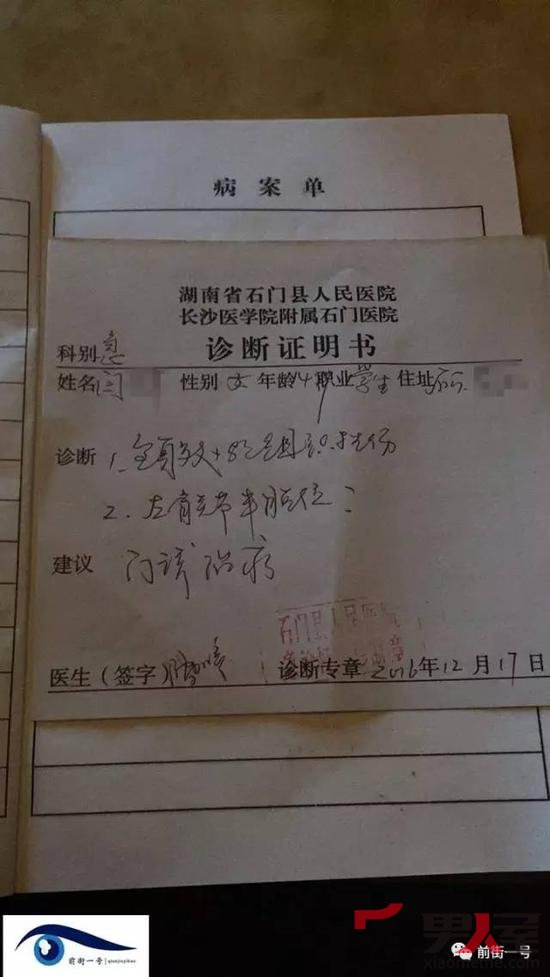 病案单
湖南省石门县人民医院
长沙医学院附属石门医院
科别 急 诊断证明书
姓名 闫 性别 女 年龄 14 职业 学生 住址
诊断 1. 全身多处软组织挫伤
2. 左肩关节半脱位？
建议 门诊治疗
医生（签字） 诊断专章 2016年12月17日
石门县人民医院
前街一号 qianjieyihao
前街一号